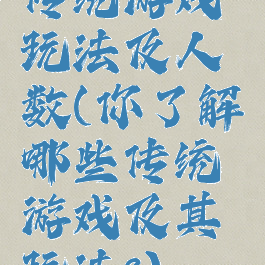 传统游戏
玩法及人
数(你了解
哪些传统
游戏及其
玩法?)